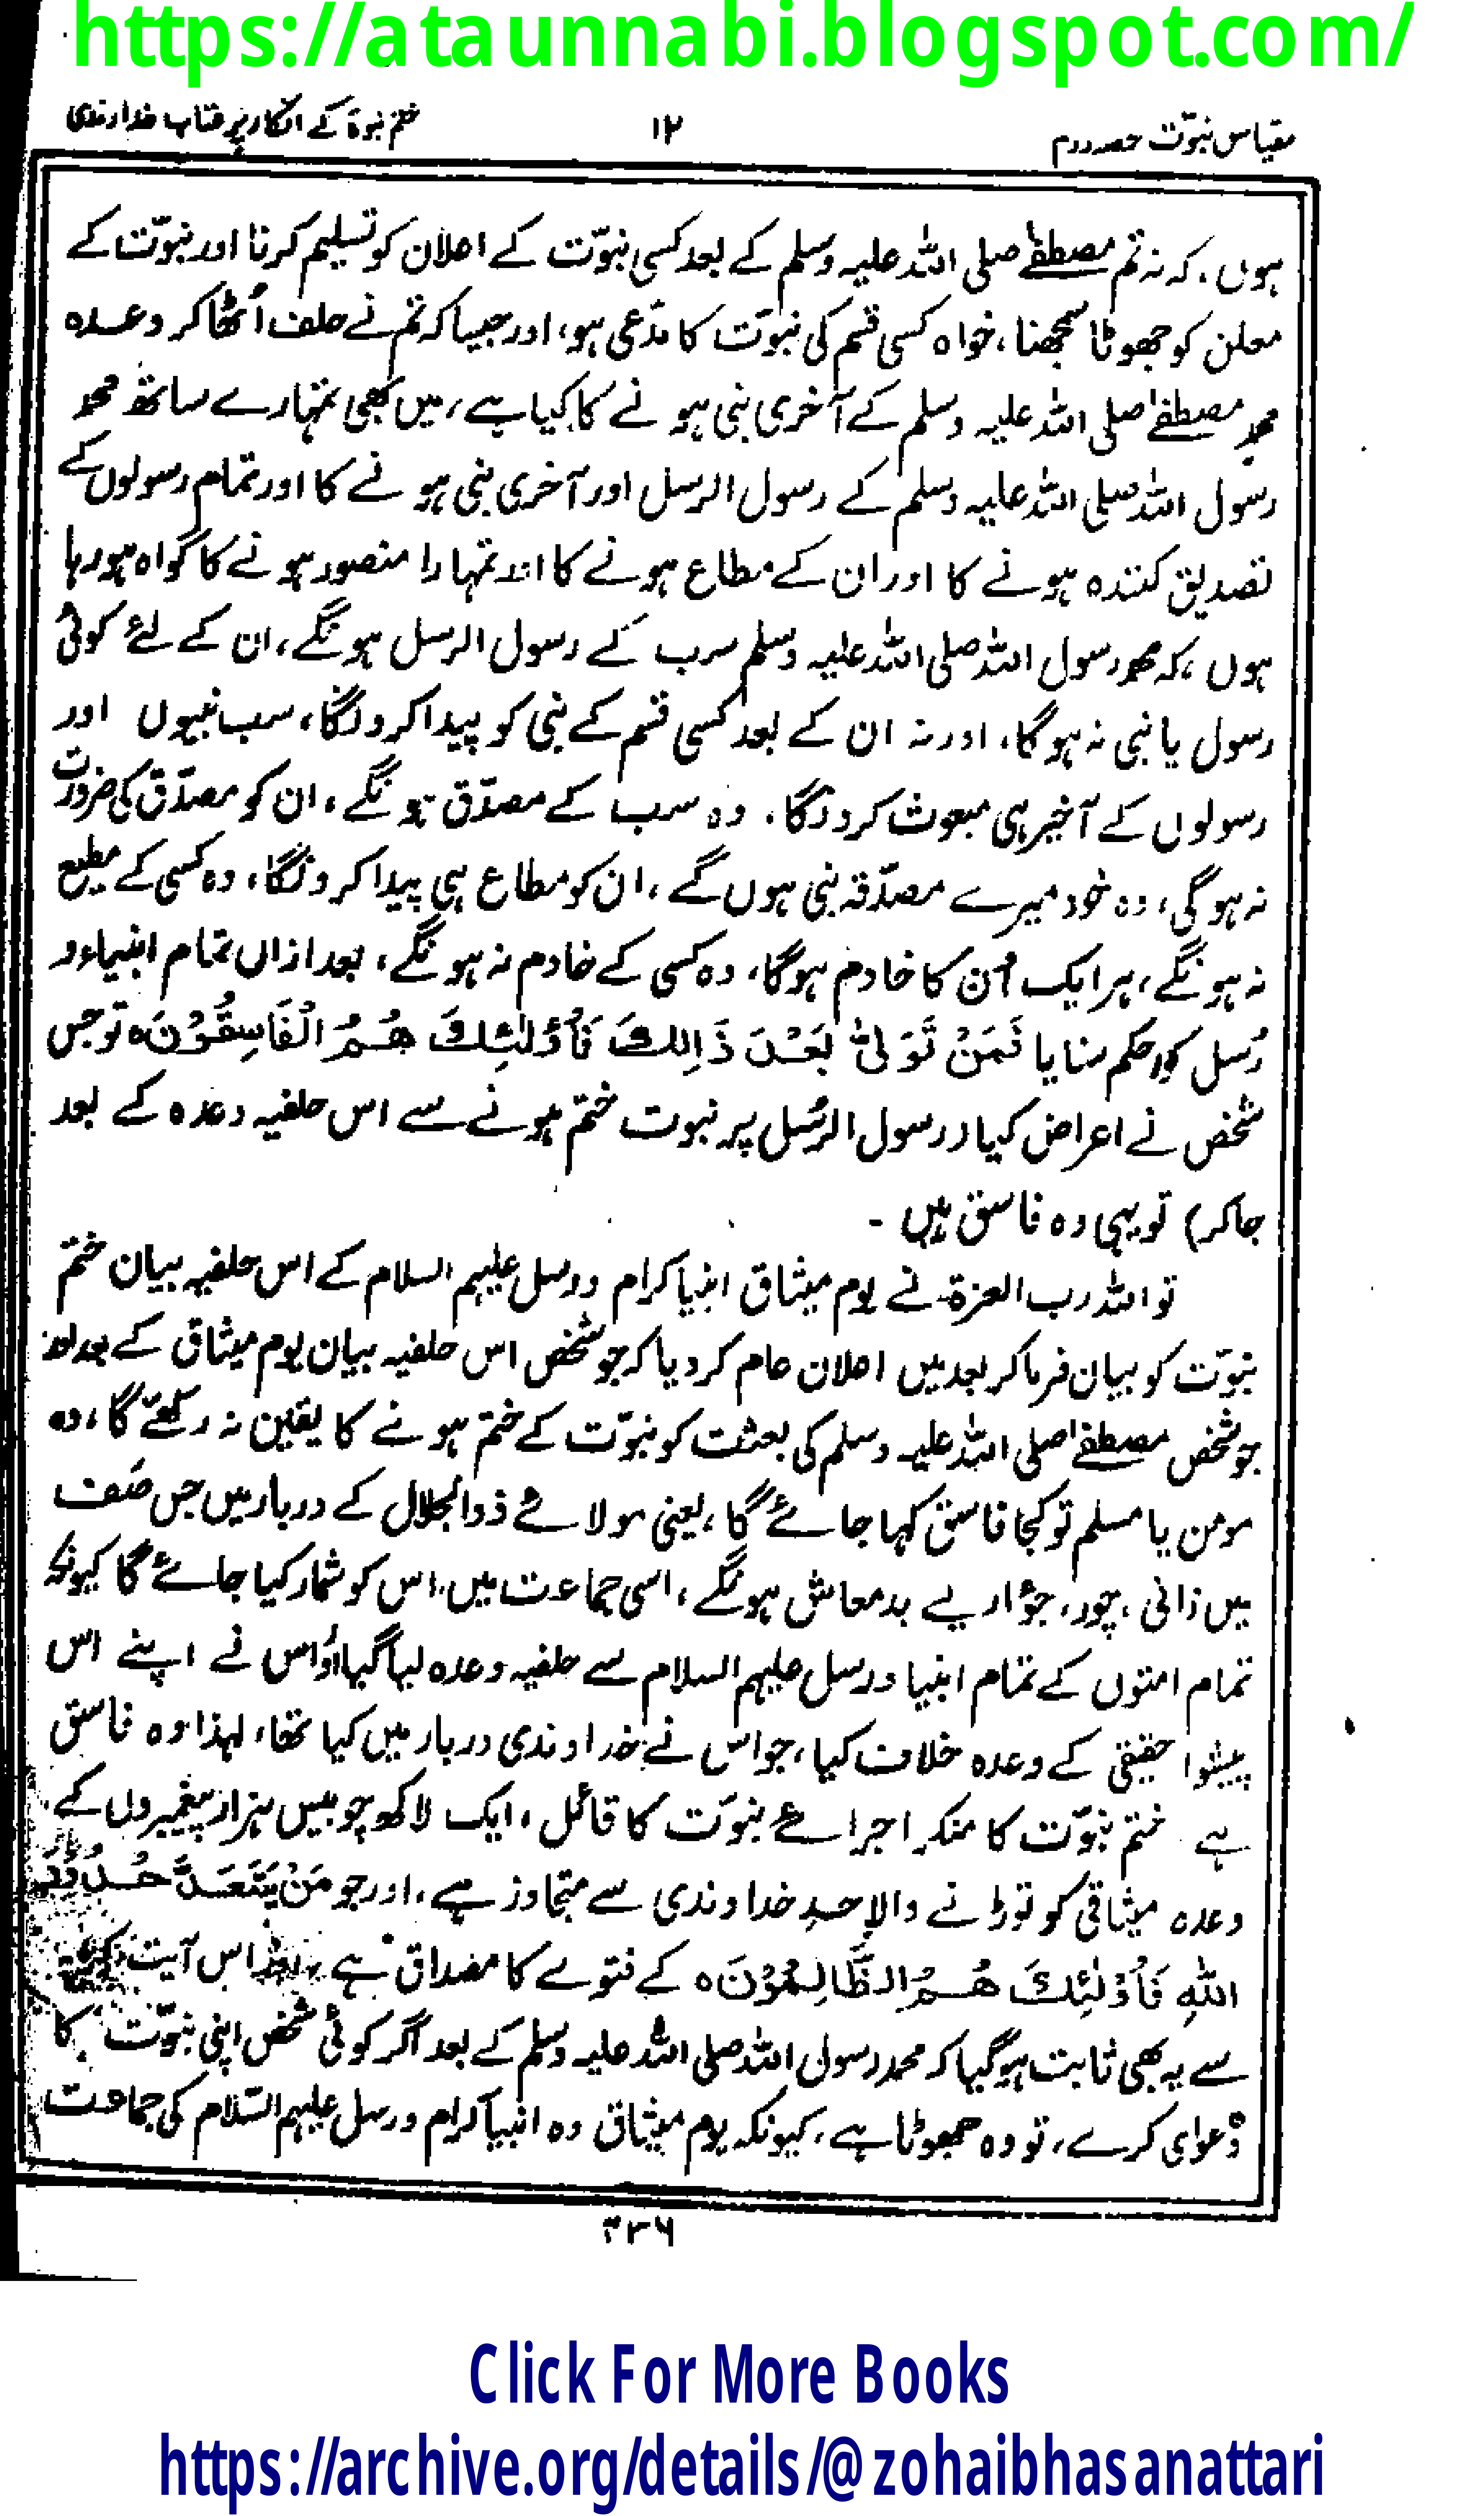 https://ataunnabi.blogspot.com/
مقیاس نبوّت حصہ دوم ۱۲ ختم نبوۃ کے انکار پر عتاب خداوندی
ہوں، کہ نہ تم مصطفےٰ صلی اللہ علیہ وسلم کے بعد کسی نبوّت کے اعلان کو تسلیم کرنا اور نبوّت کے
معلن کو جھوٹا سمجھنا، خواہ کسی قسم کی نبوّت کا مدّعی ہو، اور جیسا کہ تم نے حلف اُٹھا کر وعدہ
محمد مصطفےٰ صلی اللہ علیہ وسلم کے آخری نبی ہونے کا کیا ہے، میں بھی تمہارے ساتھ محمد
رسول اللہ صلی اللہ علیہ وسلم کے رسول الرسل اور آخری نبی ہونے کا اور تمام رسولوں کے
تصدیق کنندہ ہونے کا اور ان کے مطاع ہونے کا اور تمہارا منصور ہونے کا گواہ ہو رہا
ہوں، کہ محمد رسول اللہ صلی اللہ علیہ وسلم سب کے رسول الرسل ہونگے، ان کے لئے کوئی
رسول یا نبی نہ ہوگا، اور نہ ان کے بعد کسی قسم کے نبی کو پیدا کرونگا، سب نبیوں اور
رسولوں کے آخیر ہی مبعوث کرونگا، وہ سب کے مصدّق ہونگے، ان کو مصدّق کی ضرورت
نہ ہوگی، وہ خود میرے مصدّقہ نبی ہوں گے، ان کو مطاع ہی پیدا کرونگا، وہ کسی کے مطیع
نہ ہونگے، ہر ایک اُن کا خادم ہوگا، وہ کسی کے خادم نہ ہونگے، بعد ازاں تمام انبیاء و
رُسل کو حکم سنایا فَمَنْ تَوَلّٰی بَعْدَ ذَالِكَ فَأُولٰئِكَ هُمُ الْفَاسِقُوْنَ ہ تو جس
شخص نے اعراض کیا (رسول الرسُل پر نبوت ختم ہونے سے اس حلفیہ وعدہ کے بعد
جا کر) تو یہی وہ فاسق ہیں ۔
تو اللہ رب العزۃ نے یوم میثاق انبیا کرام و رسل علیہم السلام کے اس حلفیہ بیان ختم
نبوّت کو بیان فرما کر بعد میں اعلان عام کر دیا کہ جو شخص اس حلفیہ بیان یوم میثاق کے بعد اور
جو شخص مصطفےٰ صلی اللہ علیہ وسلم کی بعثت کو نبوّت کے ختم ہونے کا یقین نہ رکھے گا، وہ
مومن یا مسلم تو کجا فاسق کہا جائے گا، یعنی مولائے ذوالجلال کے دربار میں جس صَف
میں زانی، چور، جوُاریے بدمعاش ہونگے، اسی جماعت میں اس کو شمار کیا جائے گا کیونکہ
تمام امتوں کے تمام انبیا و رسل علیہم السلام سے حلفیہ وعدہ لیا گیا اور اس نے اپنے اس
پیشوا حقیقی کے وعدہ خلاف کیا، جو اس نے خداوندی دربار میں کیا تھا، لہذا وہ فاسق
ہے ختم نبوّت کا منکر اجرائے نبوّت کا قائل، ایک لاکھ چوبیس ہزار پیغمبروں کے
وعدہ میثاقی کو توڑنے والا حدِ خداوندی سے متجاوز ہے، اور جو مَنْ يَتَعَدَّ حُدُوْدَ
اللهِ فَأُوْلٰئِكَ هُمُ الظَّالِمُوْنَ ہ کے فتوے کا مصداق ہے اس آیت
سے یہ بھی ثابت ہو گیا کہ محمد رسول اللہ صلی اللہ علیہ وسلم کے بعد اگر کوئی شخص اپنی نبوّت کا
دعوای کرے، تو وہ جھوٹا ہے، کیونکہ یوم میثاق وہ انبیا کرام و رسل علیہم السّلام کی جماعت
۳۳۶
Click For More Books
https://archive.org/details/@zohaibhasanattari